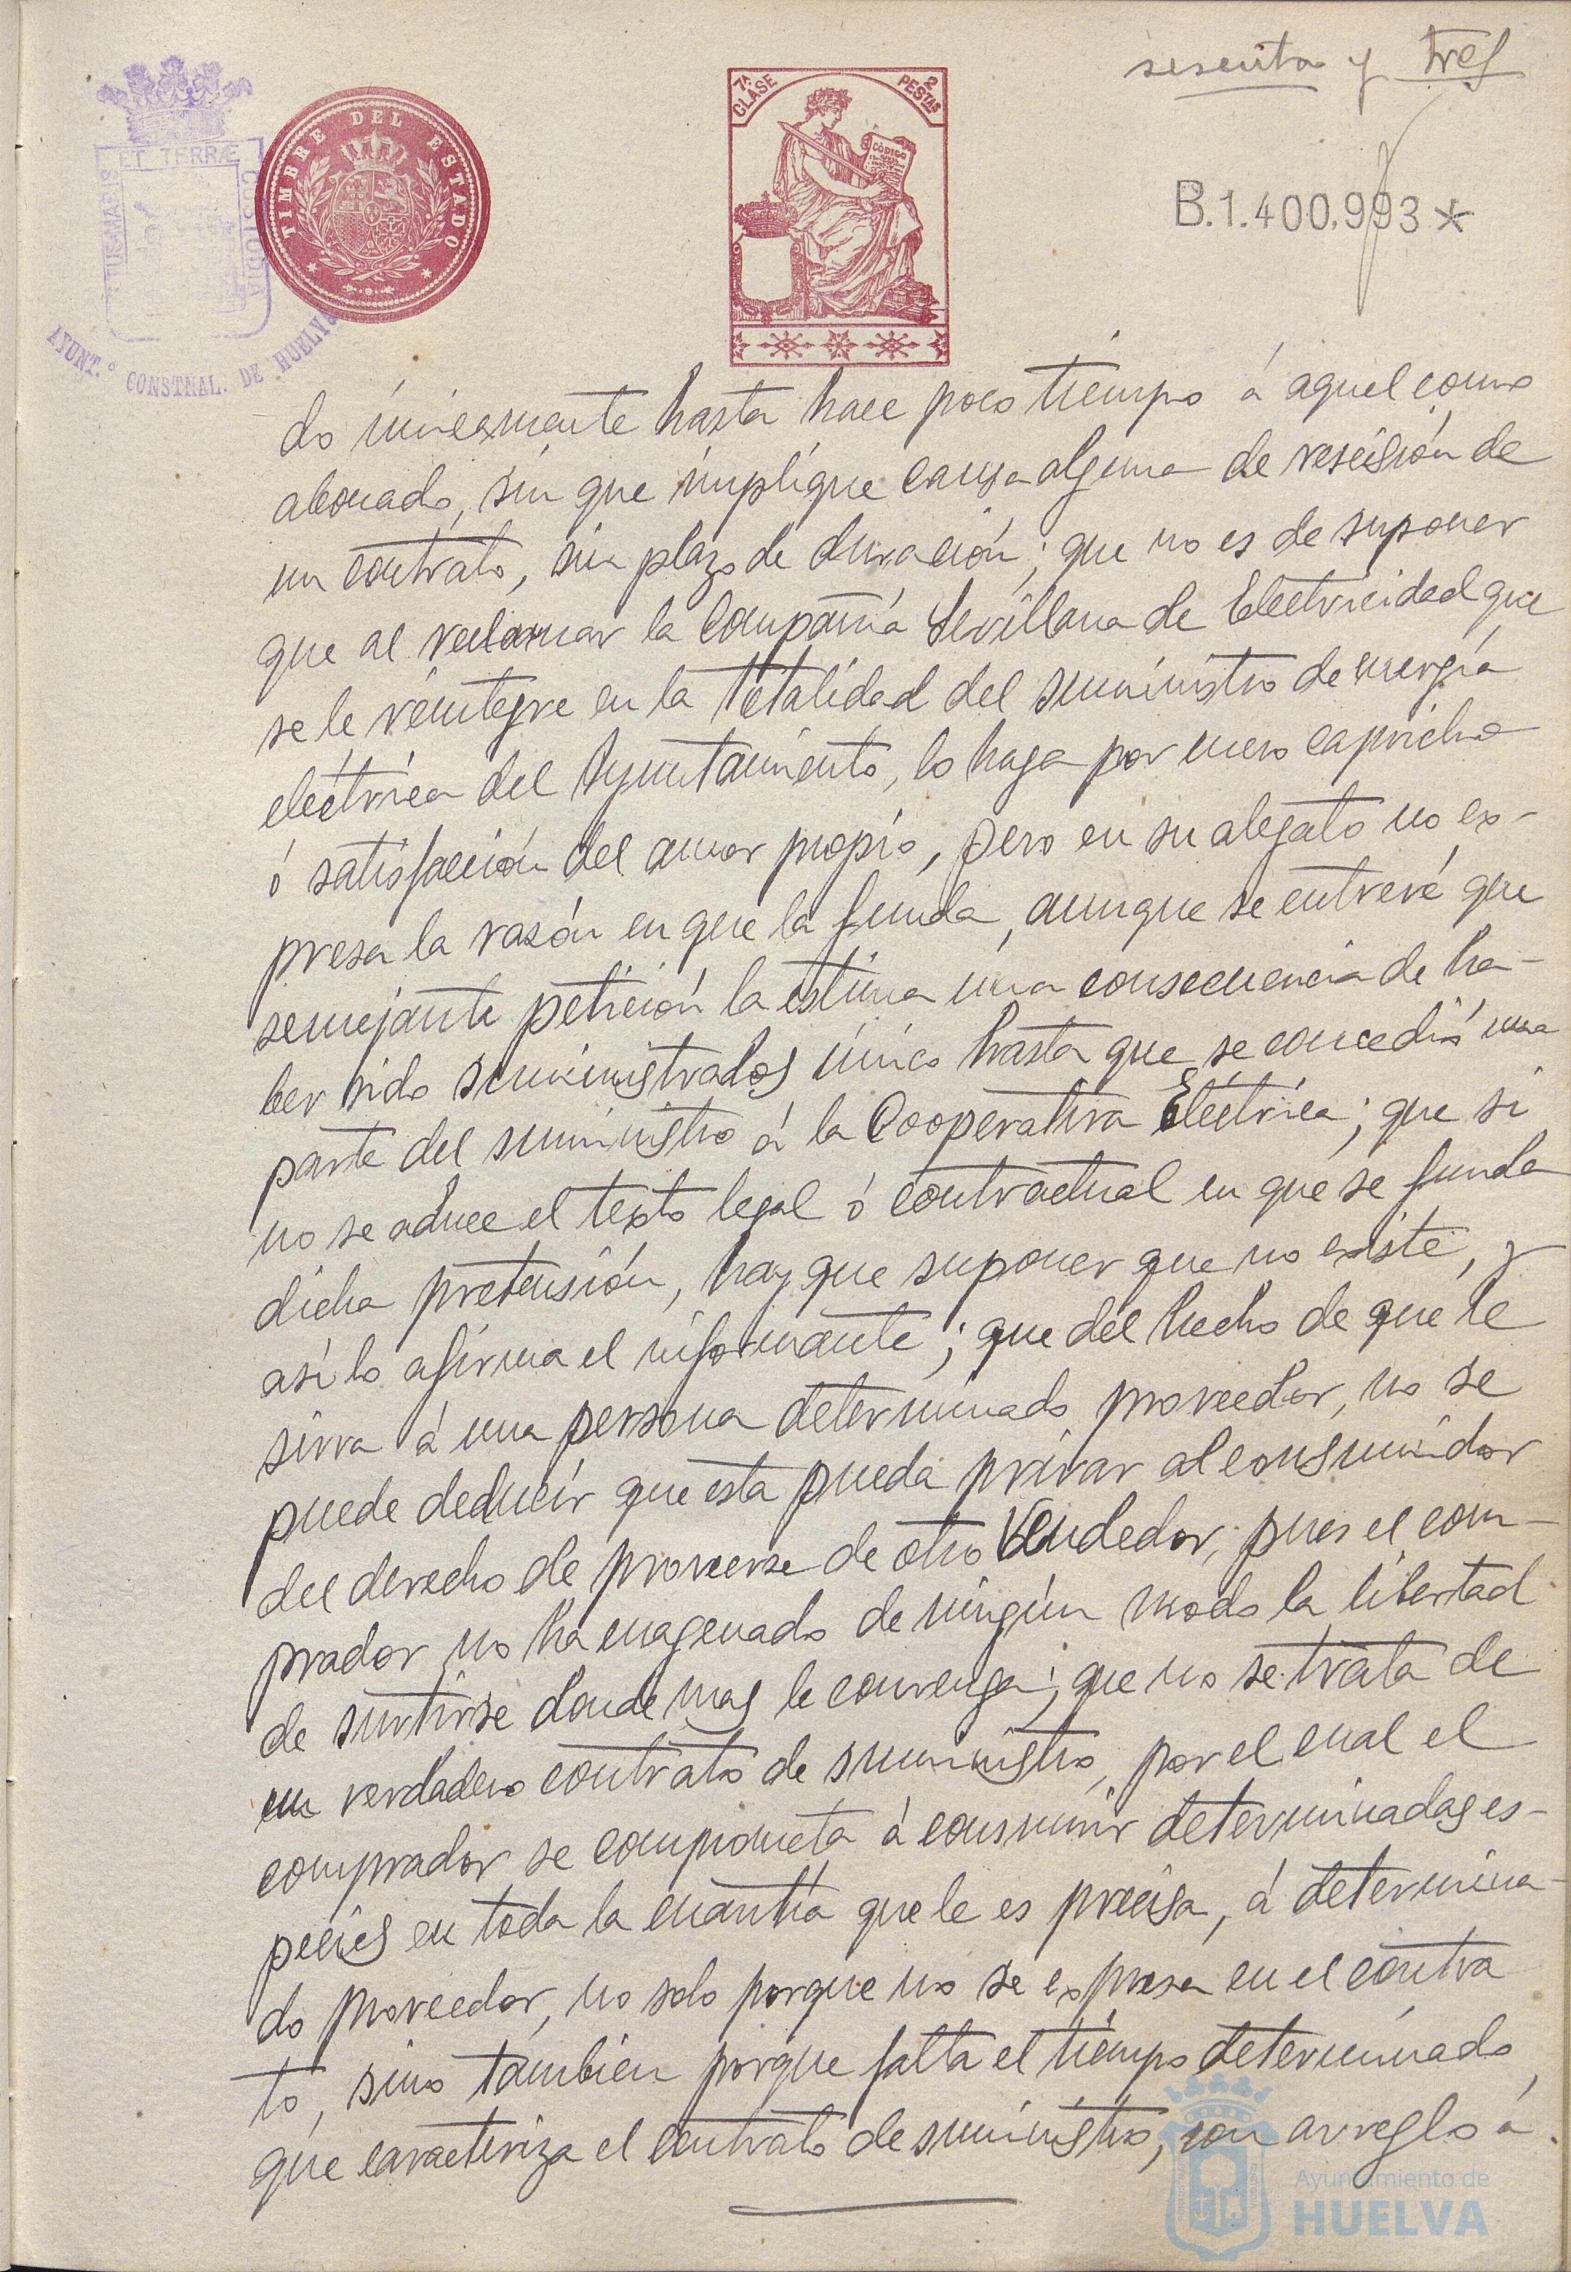 sesenta y tres
7ª CLASE
2 PESTAS
CÓDIGO
TIMBRE DEL ESTADO
ET TERRÆ CUSTODIA
AYUNT.º CONSTNAL. DE HUELVA
B.1.400.993*
do únicamente hasta hace poco tiempo á aquel como
abonado, sin que implique causa alguna de rescisión de
un contrato, sin plazo de duración; que no es de suponer
que al reclamar la Compañía Sevillana de Electricidad que
se le reintegre en la totalidad del suministro de energía
eléctrica del Ayuntamiento, lo haga por mero capricho
ó satisfacción del amor propio, pero en su alegato no ex-
presa la razón en que la funda, aunque se entrevé que
semejante petición la estima una consecuencia de ha-
ber sido suministrados único hasta que se concedió una
parte del suministro á la Cooperativa Eléctrica; que si
no se aduce el texto legal ó contractual en que se funda
dicha pretensión, hay que suponer que no existe, y
así lo afirma el informante; que del hecho de que le
sirva á una persona determinado proveedor, no se
puede deducir que esta pueda privar al consumidor
del derecho de proveerse de otro Vendedor, pues el com-
prador no ha enagenado de ningún modo la libertad
de surtirse donde mas le convenga; que no se trata de
un verdadero contrato de suministro, por el cual el
comprador se comprometa á consumir determinadas es-
pecies en toda la cuantía que le es precisa, á determina-
do proveedor, no solo porque no se expresa en el contra
to, sino también porque falta el tiempo determinado,
que caracteriza el contrato de suministro, con arreglo á
Ayuntamiento de
HUELVA